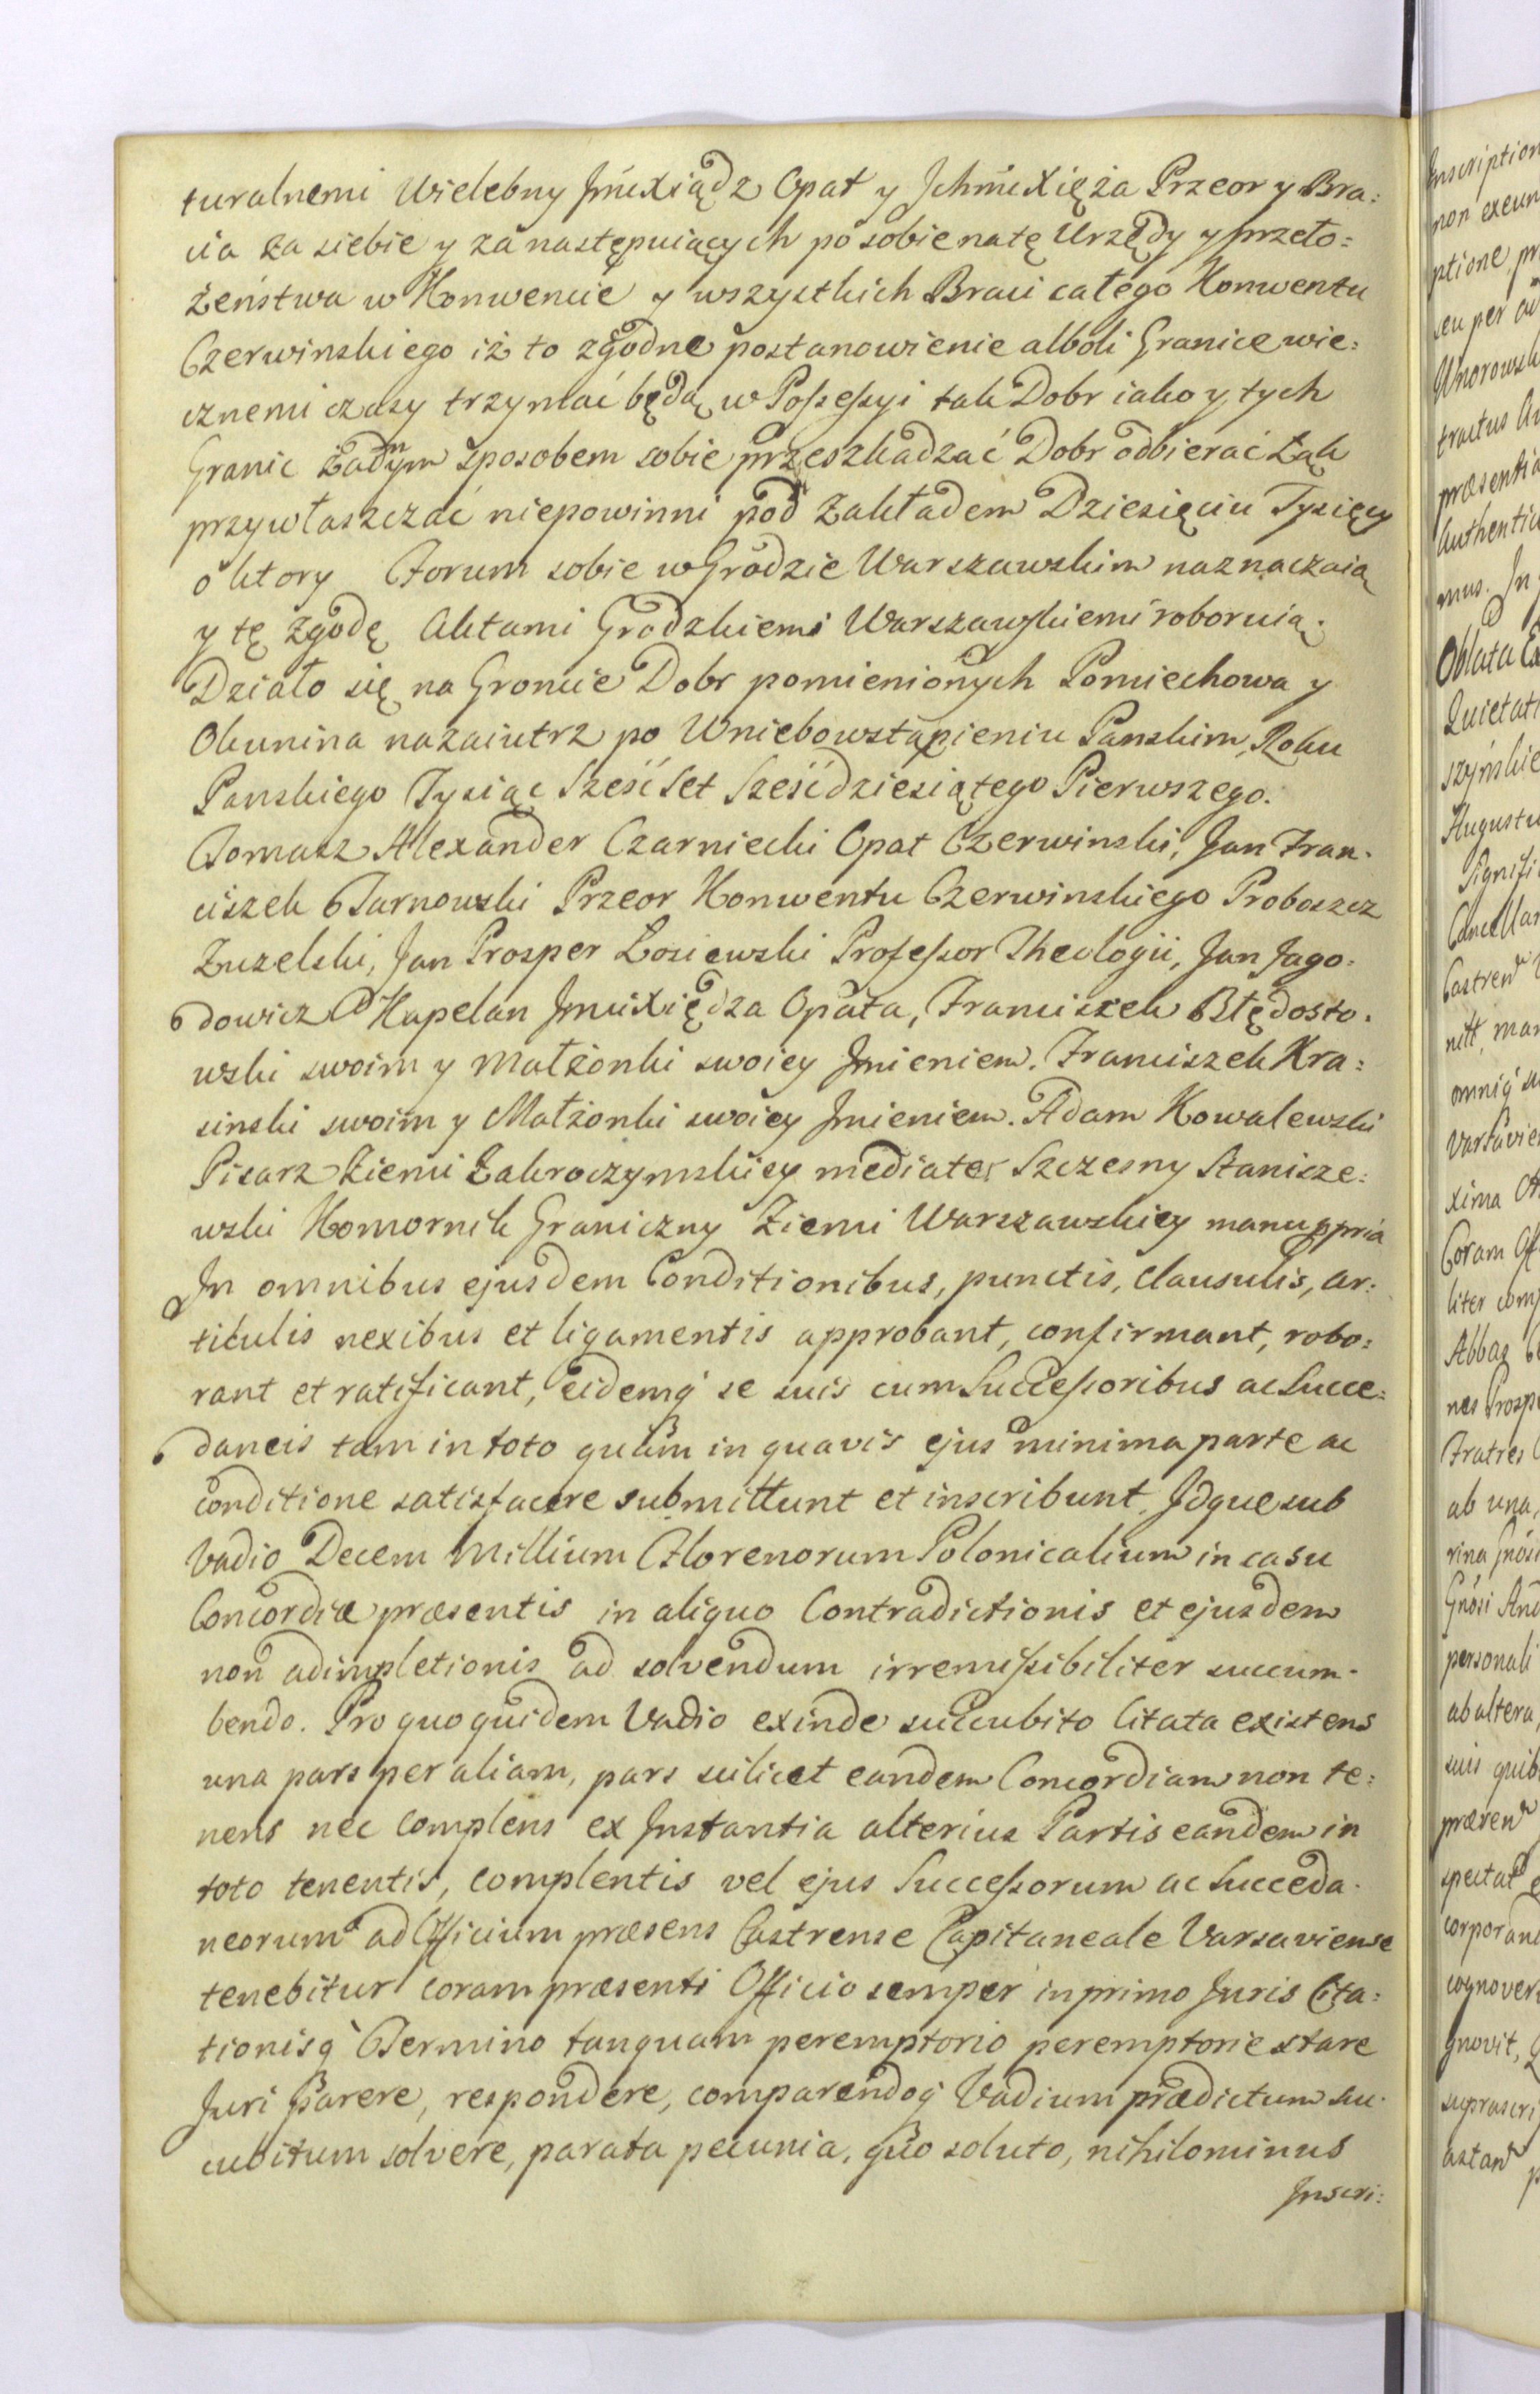 turalnemi Wielebny JmcXiądz Opat y JchmcXięża Przeor y Bra:
cia za siebie y za następuiących po sobie natę Urzędy y przeło:
żeństwa w Konwencie y wszystkich Braci całego Konwentu
Czerwinskiego iż to zgodne postanowienie alboli Granice wie:
cznemi czasy trzymać będą, w Possessyi tak Dobr iako y tych
Granic żadnym sposobem sobie przeszkadzać Dobr odbierać Łąk
przywłaszczać niepowinni pod Zakładem Dziesięciu Tysięcy
o ktory Forum sobie w Grodzie Warszawskim naznaczaią
y tę zgodę Aktami Grodzkiemi Warszawskiemi roboruią.
Działo się na Groncie Dobr pomienionych Pomiechowa y
Okunina nazaiutrz po Wniebowstąpieniu Panskim, Roku
Panskiego Tysiąc Sześć Set Sześćdziesiątego Pierwszego.
Tomasz Alexander Czarniecki Opat Czerwinski, Jan Fran-
ciszek Tarnowski Przeor Konwentu Czerwinskiego Proboszcz
Zuzelski, Jan Prosper Łosiewski Professor Theologii, Jan Jago-
dowicz Kapelan JmciXiędza Opata, Franciszek Błędosto-
wski swoim y Małżonki swoiey Jmieniem. Franciszek Kra:
sinski swoim y Małżonki swoiey Jmieniem. Adam Kowalewski
Pisarz Ziemi Zakroczymskiey mediator Szczesny Stanisze:
wski Komornik Graniczny Ziemi Warszawskiey manu ppria
In omnibus ejusdem Conditionibus, punctis, Clausulis, ar:
ticulis nexibus et ligamentis approbant, confirmant, robo:
rant et ratificant, eidemq́ se suis cum Successoribus ac Succe:
daneis tam in toto quam in quavis ejus minima parte ac
conditione satisfacere submittunt et inscribunt. Idque sub
Vadio Decem Millium Florenorum Polonicalium in casu
Concordiæ præsentis in aliquo Contradictionis et ejusdem
non adimpletionis ad solvendum irremissibiliter succum-
bendo. Pro quo quidem Vadio exinde succubito Citata existens
una pars per aliam, pars scilicet eandem Concordiam non te:
nens nec complens ex Instantia alterius Partis eandem in
toto tenentis, complentis vel ejus Successorum ac Succeda-
neorum ad Officium præsens Castrense Capitaneale Varsaviense
tenebitur coram præsenti Officio semper in primo Juris Cita:
tionisq́ Termino tanquam peremptorio peremptorie stare
Juri parere, respondere, comparendoq́ Vadium prædictum suc-
cubitum solvere, parata pecunia, quo soluto, nihilominus
Inscri: